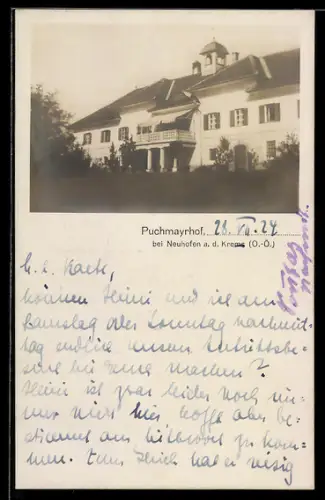 Puchmayrhof, 28. VII. 24
bei Neuhofen a. d. Krems (O.-Ö.)
L. l. Kaete,
können Heini und ich am
Samstag oder Sonntag nachmit-
tag endlich unsern Antrittsbe-
such bei Euch machen?
Heini ist zwar leider noch im-
mer nicht hier hofft aber be-
stimmt am Mittwoch zu kom-
men. Euer Heini hat ja riesig